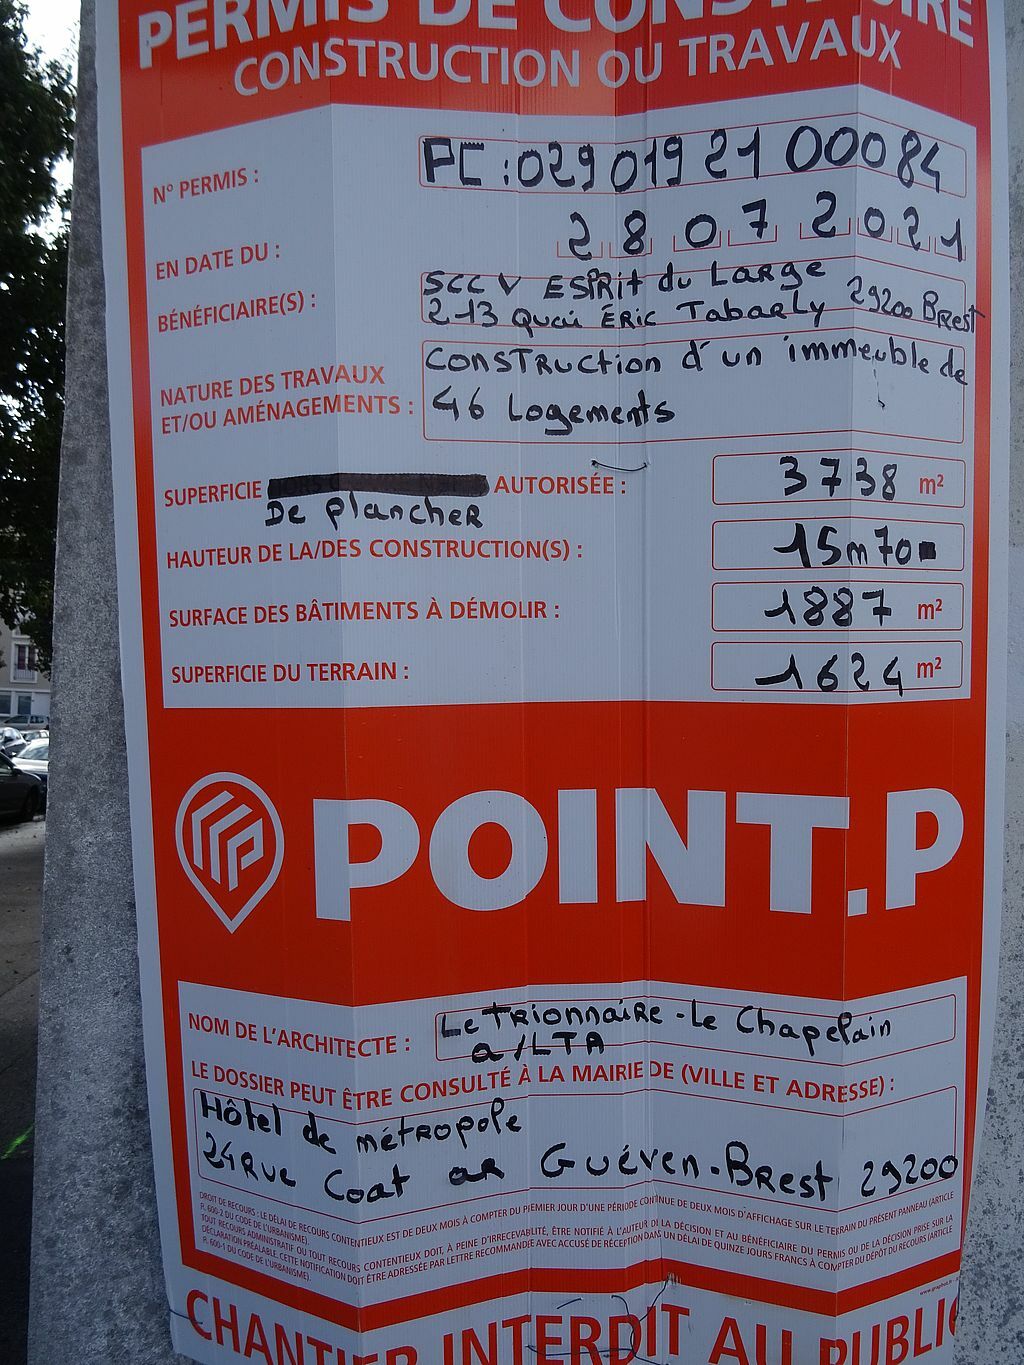 PERMIS DE CONSTRUIRE
CONSTRUCTION OU TRAVAUX
N° PERMIS : PC : 029 019 21 00084
EN DATE DU : 28 07 2021
BÉNÉFICIAIRE(S) : SCCV ESPRIT du Large
2-13 Quai ÉRIC Tabarly 29200 Brest
NATURE DES TRAVAUX
ET/OU AMÉNAGEMENTS : CONSTRuction d'un immeuble de
46 Logements
SUPERFICIE AUTORISÉE : 3738 m²
De plancher
HAUTEUR DE LA/DES CONSTRUCTION(S) : 15m70
SURFACE DES BÂTIMENTS À DÉMOLIR : 1887 m²
SUPERFICIE DU TERRAIN : 1624 m²
POINT.P
NOM DE L'ARCHITECTE : Le Trionnaire - Le Chapelain
a/LTA
LE DOSSIER PEUT ÊTRE CONSULTÉ À LA MAIRIE DE (VILLE ET ADRESSE) :
Hôtel de métropole
24 Rue Coat ar Guéven - Brest 29200
DROIT DE RECOURS : LE DÉLAI DE RECOURS CONTENTIEUX EST DE DEUX MOIS À COMPTER DU PREMIER JOUR D'UNE PÉRIODE CONTINUE DE DEUX MOIS D'AFFICHAGE SUR LE TERRAIN DU PRÉSENT PANNEAU (ARTICLE
R. 600-2 DU CODE DE L'URBANISME).
TOUT RECOURS ADMINISTRATIF OU TOUT RECOURS CONTENTIEUX DOIT, À PEINE D'IRRECEVABILITÉ, ÊTRE NOTIFIÉ À L'AUTEUR DE LA DÉCISION ET AU BÉNÉFICIAIRE DU PERMIS OU DE LA DÉCISION PRISE SUR LA
DÉCLARATION PRÉALABLE. CETTE NOTIFICATION DOIT ÊTRE ADRESSÉE PAR LETTRE RECOMMANDÉE AVEC ACCUSÉ DE RÉCEPTION DANS UN DÉLAI DE QUINZE JOURS FRANCS À COMPTER DU DÉPÔT DU RECOURS (ARTICLE
R. 600-1 DU CODE DE L'URBANISME).
CHANTIER INTERDIT AU PUBLIC